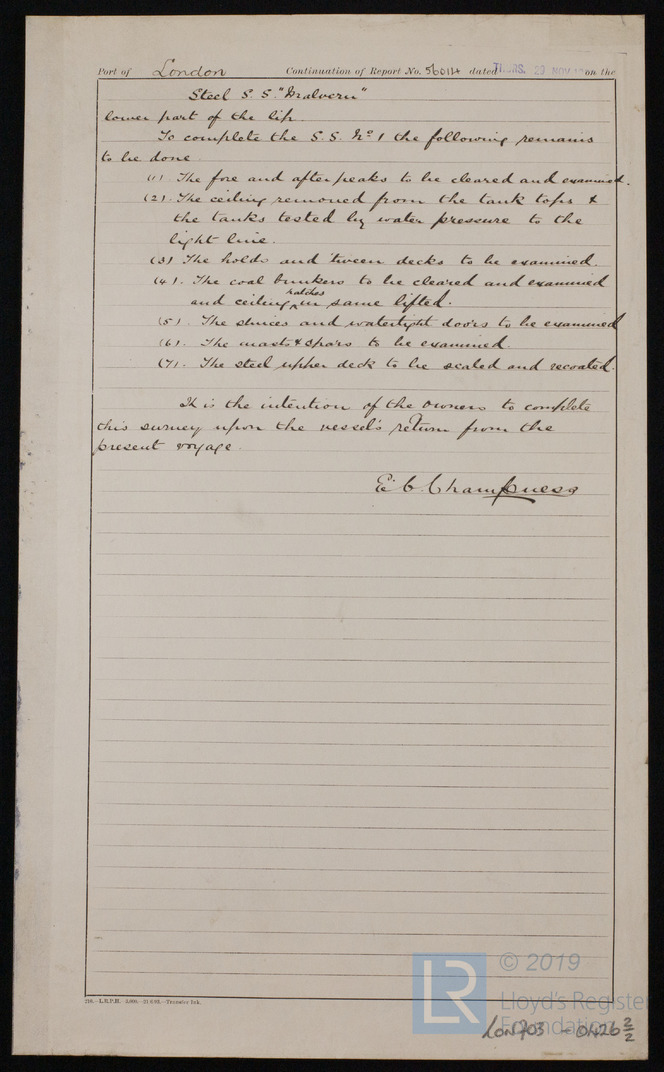 Port of London Continuation of Report No. 56014 dated THURS. 29 NOV on the
Steel S.S. "Malvern"
lower part of the lip.
To complete the S.S. No 1 the following remains
to be done.
(1). The fore and after peaks to be cleared and examined.
(2). The ceiling removed from the tank tops &
the tanks tested by water pressure to the
light line.
(3) The holds and 'tween decks to be examined.
(4). The coal bunkers to be cleared and examined
hatches
and ceiling ^ in same lifted.
(5). The sluices and watertight doors to be examined
(6). The masts & spars to be examined.
(7). The steel upper deck to be scaled and recoated.
It is the intention of the owners to complete
this survey upon the vessel's return from the
present voyage.
E. C. Champness
210.—L.R.P.H. —Transfer Ink.
LR © 2019
Lloyd's Register
Foundation
LON703 - 0426 2/2